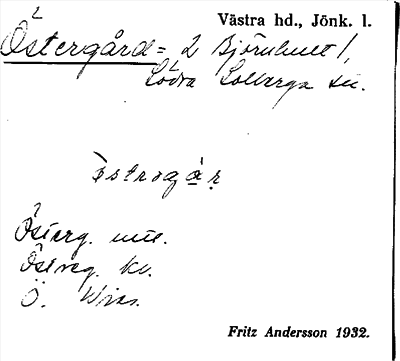 Västra hd., Jönk. l.
Östergård = 2 Björnhult 1,
Södra Solberga sn.
östrogå̠ṛ
Österg. mtl.
Östreg. kv.
Ö.
Fritz Andersson 1932.